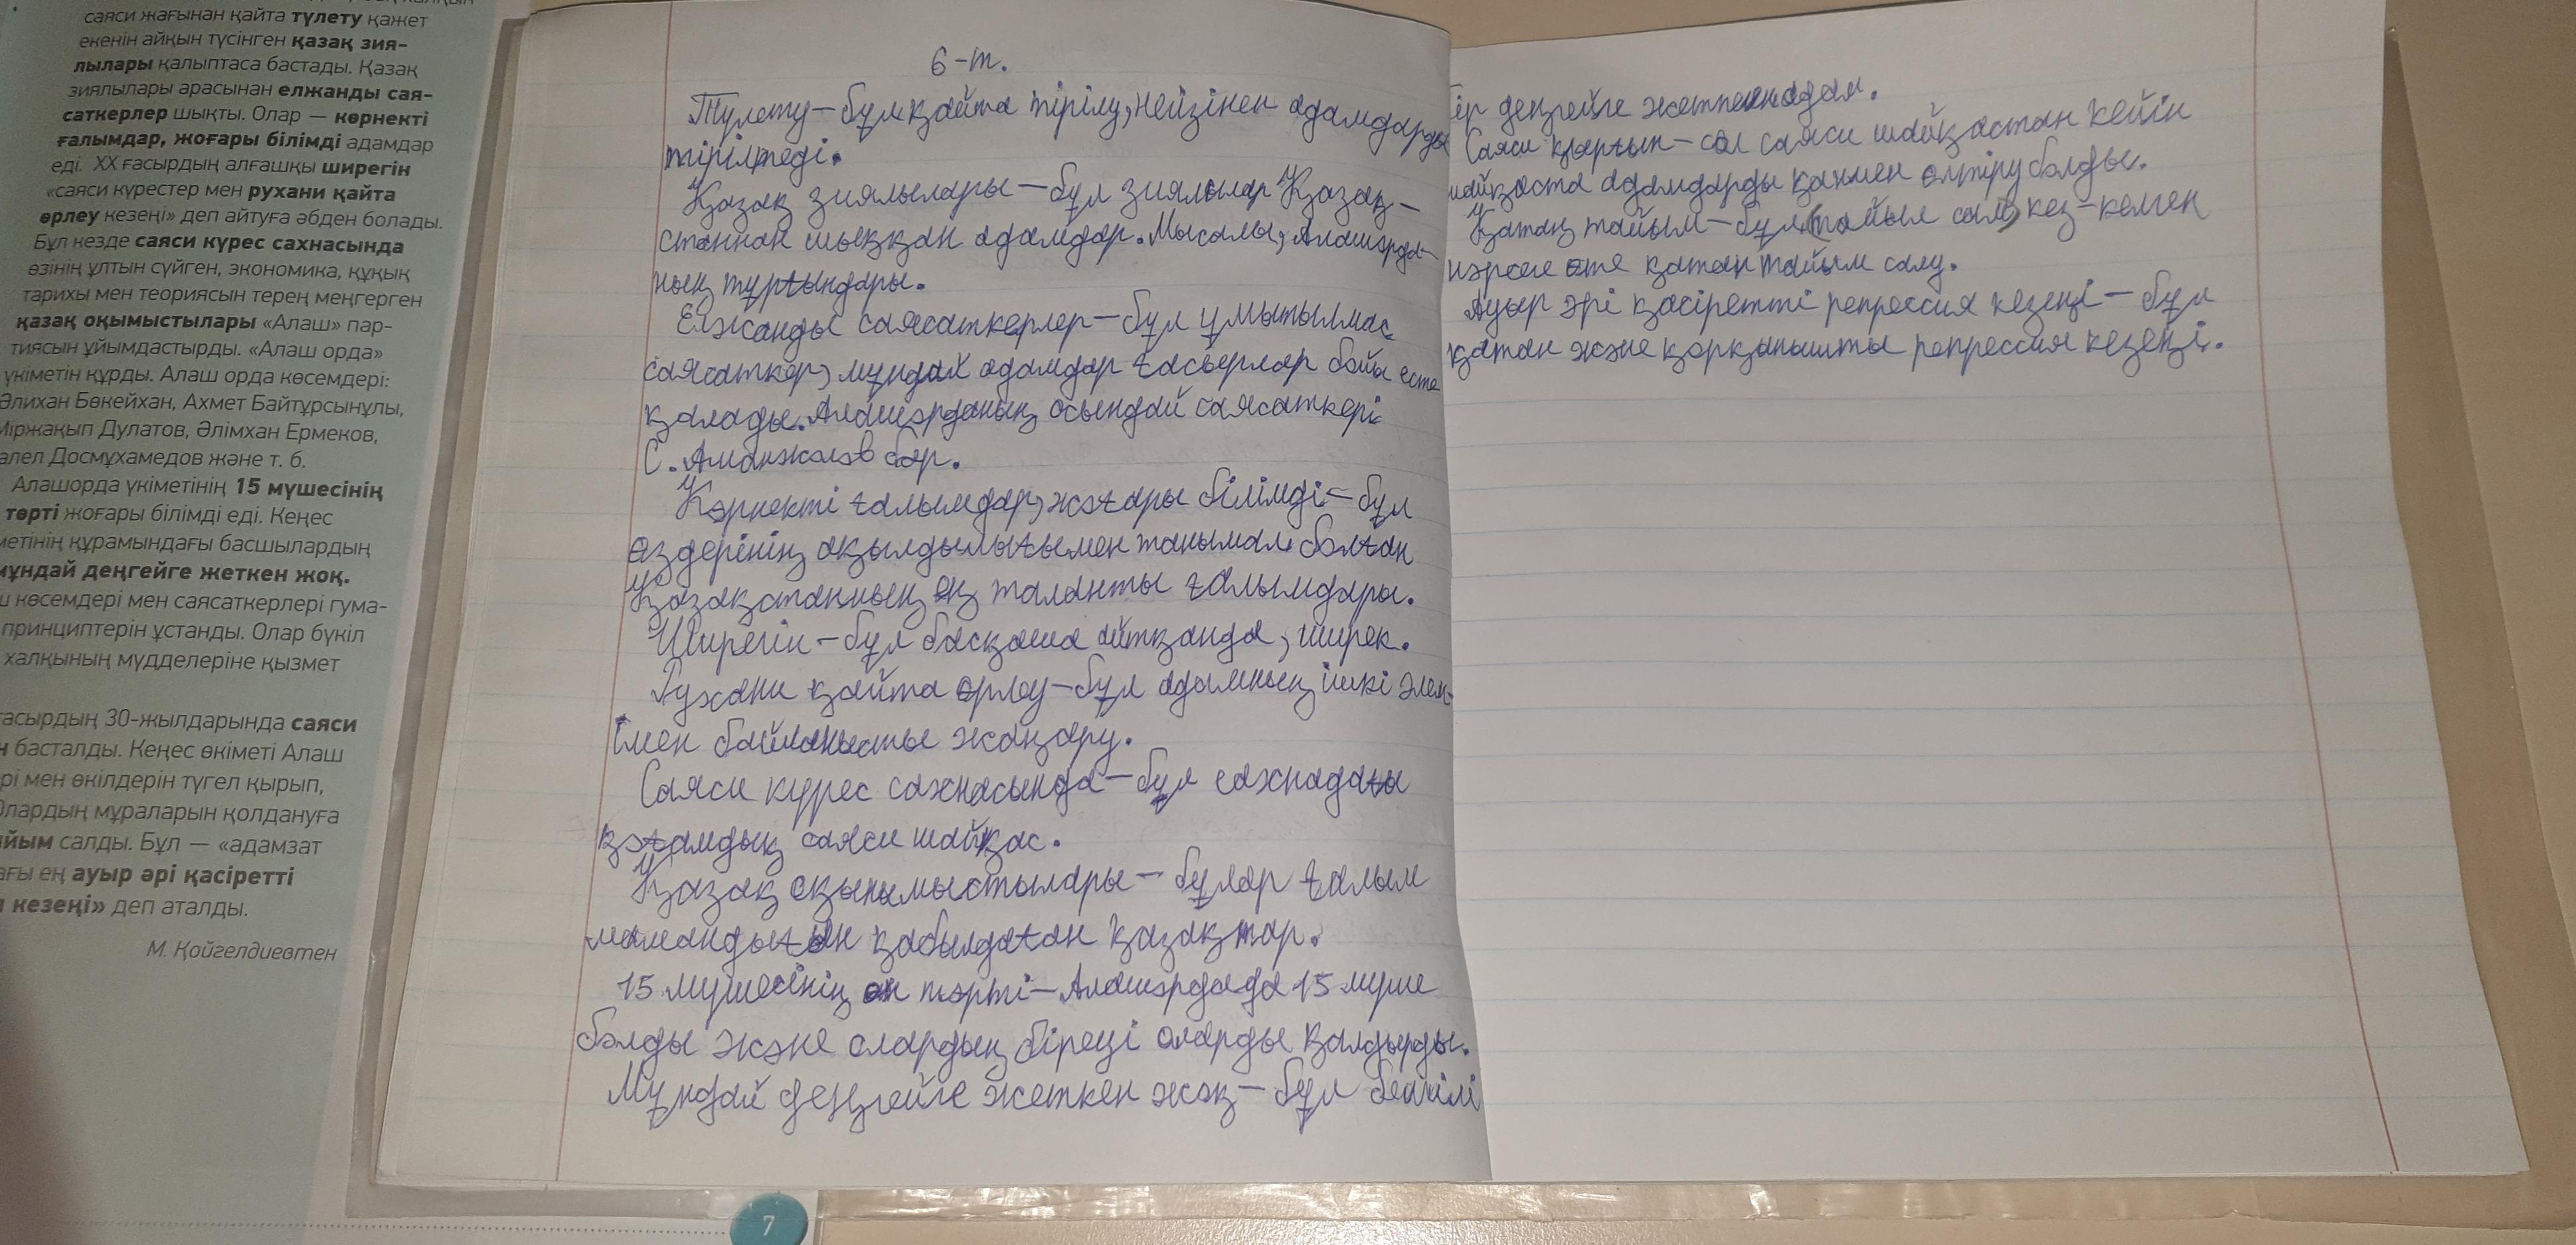 саяси жағынан қайта түлету қажет
екенін айқын түсінген қазақ зия-
лылары қалыптаса бастады. Қазақ
зиялылары арасынан елжанды сая-
саткерлер шықты. Олар — көрнекті
ғалымдар, жоғары білімді адамдар
еді. ХХ ғасырдың алғашқы ширегін
«саяси күрестер мен рухани қайта
өрлеу кезеңі» деп айтуға әбден болады.
Бұл кезде саяси күрес сахнасында
өзінің ұлтын сүйген, экономика, құқық
тарихы мен теориясын терең меңгерген
қазақ оқымыстылары «Алаш» пар-
тиясын ұйымдастырды. «Алаш орда»
үкіметін құрды. Алаш орда көсемдері:
Әлихан Бөкейхан, Ахмет Байтұрсынұлы,
Міржақып Дулатов, Әлімхан Ермеков,
алел Досмұхамедов және т. б.
Алашорда үкіметінің 15 мүшесінің
төрті жоғары білімді еді. Кеңес
метінің құрамындағы басшылардың
мұндай деңгейге жеткен жоқ.
ш көсемдері мен саясаткерлері гума-
принциптерін ұстанды. Олар бүкіл
халқының мүдделеріне қызмет
ғасырдың 30-жылдарында саяси
н басталды. Кеңес өкіметі Алаш
рі мен өкілдерін түгел қырып,
Олардың мұраларын қолдануға
йым салды. Бұл — «адамзат
ағы ең ауыр әрі қасіретті
я кезеңі» деп аталды.
М. Қойгелдиевтен
7
6-т.
Түлету – бұл қайта тірілу, негізінен адамдарды
тірілтеді.
Қазақ зиялылары – бұл зиялылар Қазақ-
станнан шыққан адамдар. Мысалы, Алашорда-
ның тұрғындары.
Елжанды саясаткерлер – бұл ұмытылмас
саясаткер, мұндай адамдар ғасырлар бойы есте
қалады. Алашорданың осындай саясаткері
С. Аманжолов бар.
Көрнекті ғалымдар, жоғары білімді – бұл
өздерінің ақылдылығымен танымал болған
Қазақстанның ең таланты ғалымдары.
Ширегін – бұл басқаша айтқанда, ширек.
Рухани қайта өрлеу – бұл адамның ішкі әлем-
імен байланысты жаңару.
Саяси күрес сахнасында – бұл сахнадағы
қоғамдық саяси шайқас.
Қазақ оқымыстылары – бұлар ғалым
мамандығын қабылдаған қазақтар.
15 мүшесінің төрті – Алашордада 15 мүше
болды және олардың біреуі оларды қалдырды.
Мұндай деңгейге жеткен жоқ – бұл белгілі
бір деңгейге жетпеген адам.
Саяси қырғын – сол саяси шайқастан кейін
шайқаста адамдарды қанмен өлтіру болды.
Қатаң тайым – бұл (тайыл сал) кез-келген
нәрсеге өте қатан тайым салу.
Ауыр әрі қасіретті репрессия кезеңі – бұл
қатан және қорқынышты репрессия кезеңі.